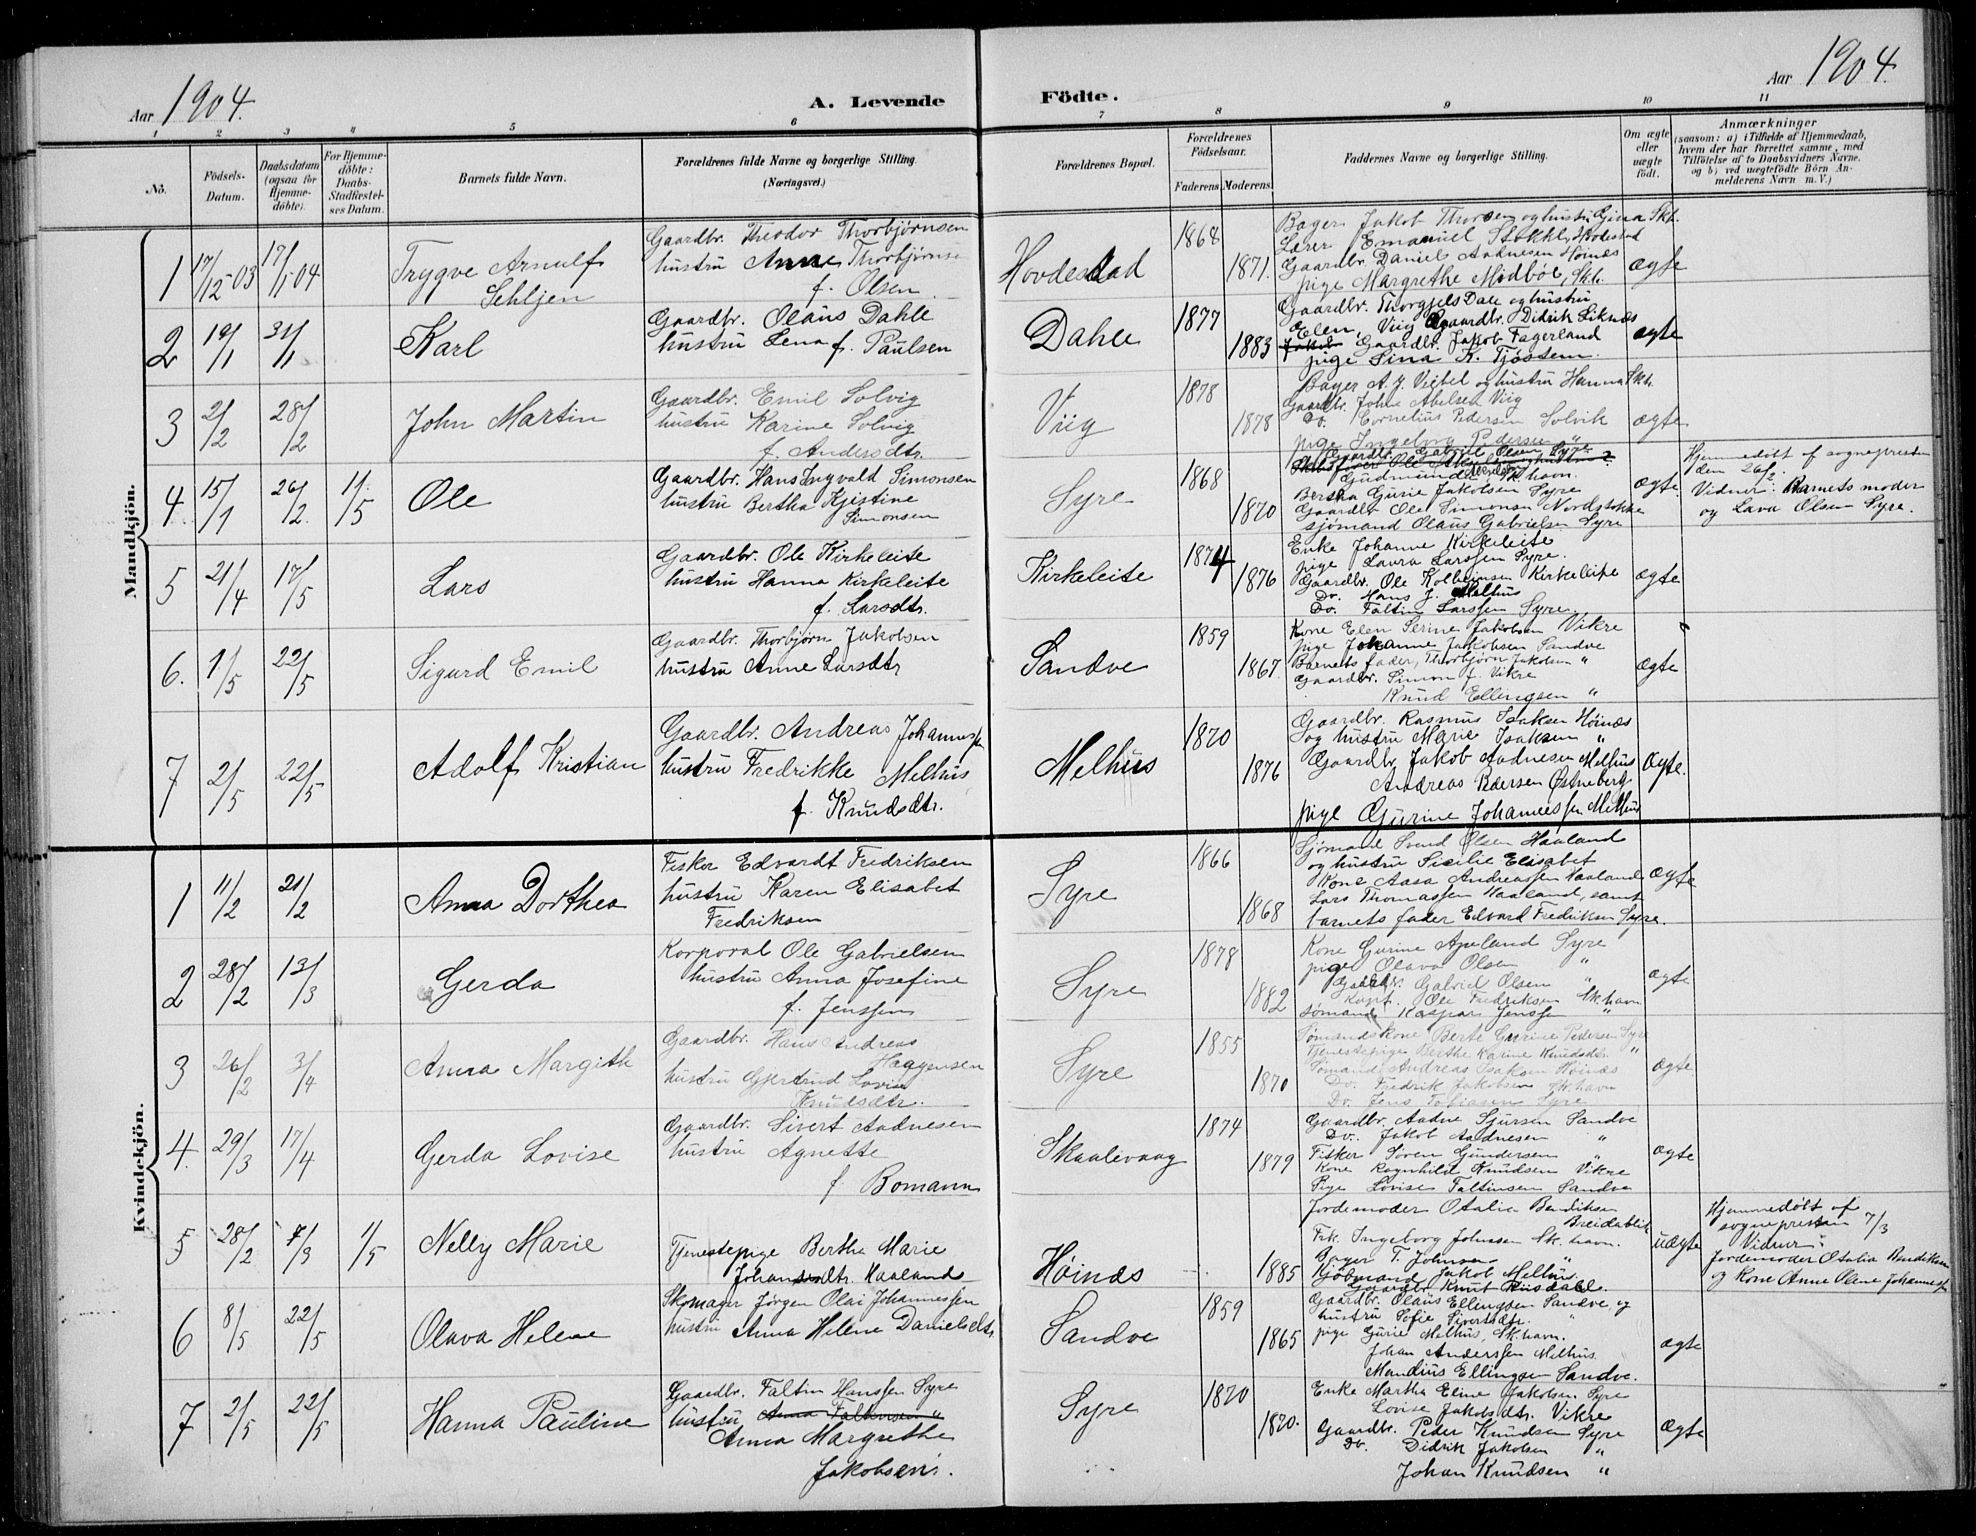 Aar 1904.
A. Levende Födte.
Aar 1904.
1 2 3 4 5 6 7 8 9 10 11
No.
Födsels-Datum.
Daabsdatum (ogsaa for Hjemme-döbte).
For Hjemme-döbte: Daabs-Stadfæstel-ses Datum.
Barnets fulde Navn.
Forældrenes fulde Navne og borgerlige Stilling. (Næringsvei.)
Forældrenes Bopæl.
Forældrenes Födselsaar.
Faderens. Moderens.
Faddernes Navne og borgerlige Stilling.
Om ægte eller uægte födt.
Anmærkninger
(saasom: a) i Tilfælde af Hjemmedaab,
hvem der har forrettet samme, med
Tilföielse af to Daabsvidners Navne.
og b) ved uægtefödte Börn An-
melderens Navn m. V.)
Mandkjön.
1 17/12-03 17/1 04 Trygve Arnulf Sehljen
Gaardbr. Theodor Thorbjørnsen
hustru Anne Thorbjørnsen
f. Olsen
Hovdestad 1868 1871.
Bager Jakob Thorsen og hustru Gina Skh.
Lærer Emanuel Stokke, Hovdestad
Gaardbr. Daniels Aadnesen Høinæs
pige Margrethe Midbøe, Skh.
ægte
2 19/1 31/1 Karl
Gaardbr. Olaus Dahle
hustru Lena f. Paulsen
Dahle 1877 1883
Gaardbr. Thorgjels Dale og hustru
Elen, Viig Gaardbr. Didrik Liknæs
Jakob Gaardbr. Jakob Fagerland
pige Sina K. Tjøstem.
ægte
3 2/2 28/2 John Martin
Gaardbr. Emil Solvig
hustru Karine Solvig
f. Andersdtr.
Viig 1878 1878
Bager A. J. Viebel og hustru Hanna Skh.
Gaardbr. John Abelsen Viig
Do. Cornelius Pedersen Solvik
pige Ingeborg Pedersen "
ægte
4 15/1 26/2 1/5 Ole
Gaardbr. Hans Ingvald Simonsen
hustru Bertha Kjistine
Simonsen
Syre 1868 1870
Gaardbr. Gabriel Olsen Syre
Gudmundsen Sk.havn.
Bertha Gurie Jakobsen Syre
Gaardbr Ole Simonsen Nordstokke
sjømand Olaus Gabrielsen Syre
ægte.
Hjemmedøbt af sognepresten
den 26/2
Vidner: Barnets moder
og Lava Olsen Syre.
5 21/4 17/5 Lars
Gaardbr. Ole Kirkeleite
hustru Hanna Kirkeleite
f. Larsdtr.
Kirkeleite 1874 1876
Enke Johanne Kirkeleite
pige Laura Larssen Syre.
Gaardbr. Ole Kolbeinsen Kirkeleite
Do. Hans J. Melhus
Do. Faltin Larssen Syre.
ægte
6. 1/5 22/5 Sigurd Emil
Gaardbr. Thorbjørn Jakobsen
hustru Anne Larsdtr
Sandve 1859 1867.
Kone Elen Serine Jakobsen Vikre
pige Johanne Jakobsen Sandve
Barnets fader, Thorbjørn Jakobsen "
Gaardbr. Simon J. Vikre
Knud Ellingsen "
ægte
7 2/5 22/5 Adolf Kristian
Gaardbr. Andreas Johannessen
hustru Fredrikke Melhus
f. Knudsdtr.
Melhus 1870 1876
Gaardbr. Rasmus Isaksen Høinæs
og hustru Marie Isaksen "
Gaardbr. Jakob Aadnesen Melhus
Andreas Pedersen Østneberg
pige Gurine Johannessen Melhus
ægte.
Kvindekjön.
1 11/2 21/2 Anna Dorthea
Fisker Edvardt Fredriksen
hustru Karen Elisabet
Fredriksen
Syre 1866 1868
Sjømand Svend Olsen Haaland
og hustru Sicilie Elisabet
Kone Aasa Andreassen Haaland
Lars Thomassen Haaland, samt
barnets fader Edvard Fredriksen Syre.
ægte
2 28/2 13/3 Gerda
Korporal Ole Gabrielsen
hustru Anna Josefine
f. Jenssen
Syre 1878 1882
Kone Gurine Apeland Syre
pige Olava Olsen "
Gaardbr. Gabriel Olsen
Kapt. Ole Fredriksen Sk.havn
sømand Kaspar Jenssen "
ægte
3 26/2 3/4 Anna Margith
Gaardbr. Hans Andreas
Haagensen
hustru Gjertrud Lovise
Knudsdtr.
Syre 1855 1870
Sømandskone Berte Gurine Pedersen Syre
Tjenestepige Berthe Karine Knudsdtr "
Sømand Andreas Isaksen Høinæs
Do. Fredrik Jakobsen Sk.havn
Do. Jens Tobiasen Syre
ægte
4. 29/3 17/4 Gerda Lovise
Gaardbr. Sivert Aadnesen
hustru Agnette
f. Bomann
Skaalevaag 1874 1879
Gaardbr. Aadne Sjursen Sandve
Do. Jakob Aadnesen "
Fisker Soren Gundersen "
Kone Ragnhild Knudsen Vikre
Pige Lovise Faltinsen Sandve
ægte
5 28/2 7/3 1/5 Nelly Marie
Tjenestepige Bertha Marie
Johansdtr. Haaland
Høinæs 1885
Jordemoder Otalia Bendiksen
Breidablik
Frk. Ingeborg Johnsen Sk.havn.
Bager T. Johnsen "
Kjøbmand Jakob Melhus
Gaardbr. Knut Riisdahl.
uægte
Hjemmedøbt af
sognepresten 7/3
Vidner:
Jordemoder Otalia Bendiksen
og Kone Anne Oline Johannessen
6 8/5 22/5 Olava Helene
Skomager Jørgen Olai Johannessen
hustru Anna Helene Danielsdtr
Sandve 1859 1865
Gaardbr. Olaus Ellingsen Sandve, og
hustru Sofie Sivertsdtr. "
pige Gurie Melhus, Sk.havn.
Johan Anderssen Melhus.
Mandius Ellingsen Sandve.
ægte
7 2/5 22/5 Hanna Pauline
Gaardbr. Faltin Hanssen Syre
hustru Anna Faltinsen "
Anna Margrethe
Jakobsen.
Syre 1870 1870.
Enke Martha Eline Jakobsen Syre
Lovise Jakobsdtr. Vikre
Gaardbr. Peder Knudsen Syre
Do. Didrik Jakobsen "
Johan Knudsen "
ægte